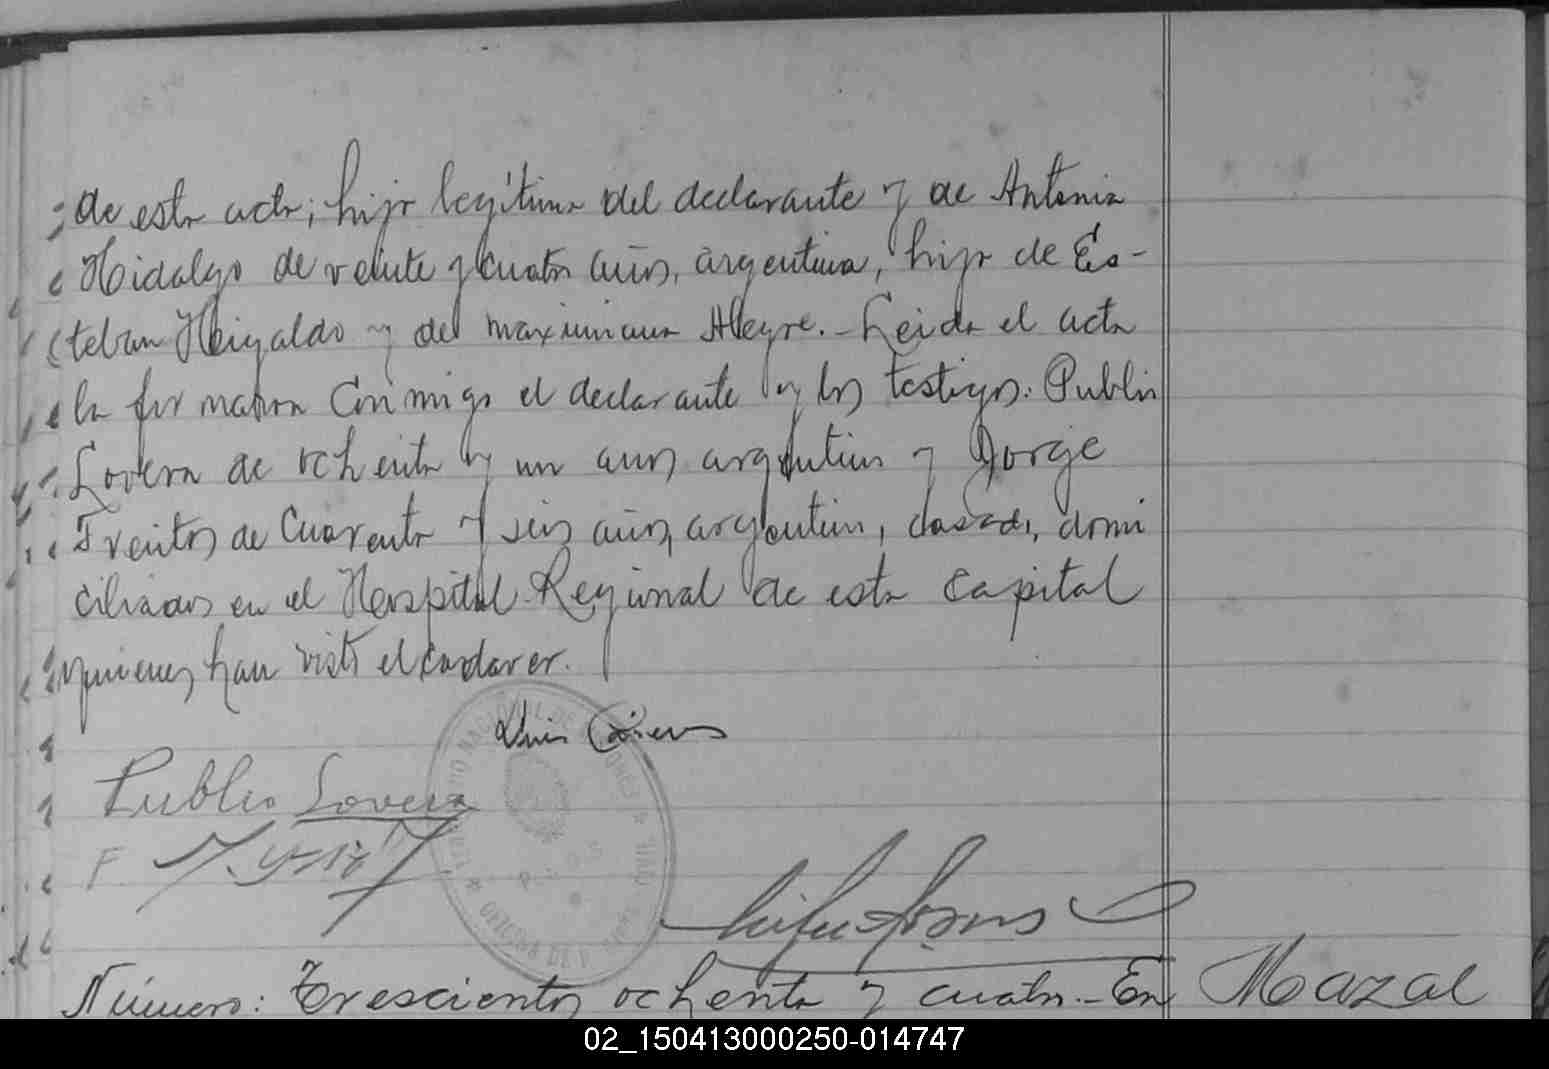 de esta acta; hijo legítimo del declarante y de Antonia
Hidalgo de veinte y cuatro años, argentina, hija de Es-
teban Heigaldo y de Maximiana Alegre. - Leida el acta
la firmaron conmigo el declarante y los testigos: Publio
Lovera de ochenta y un años argentino y Jorge
Freites de cuarenta y seis años, argentino, casado, domi
ciliados en el Hospital Regional de esta Capital
quienes han visto el cadaver.
Luis
Publio Lovera
Número: Trescientos ochenta y cuatro.- En Mazal
02_150413000250-014747